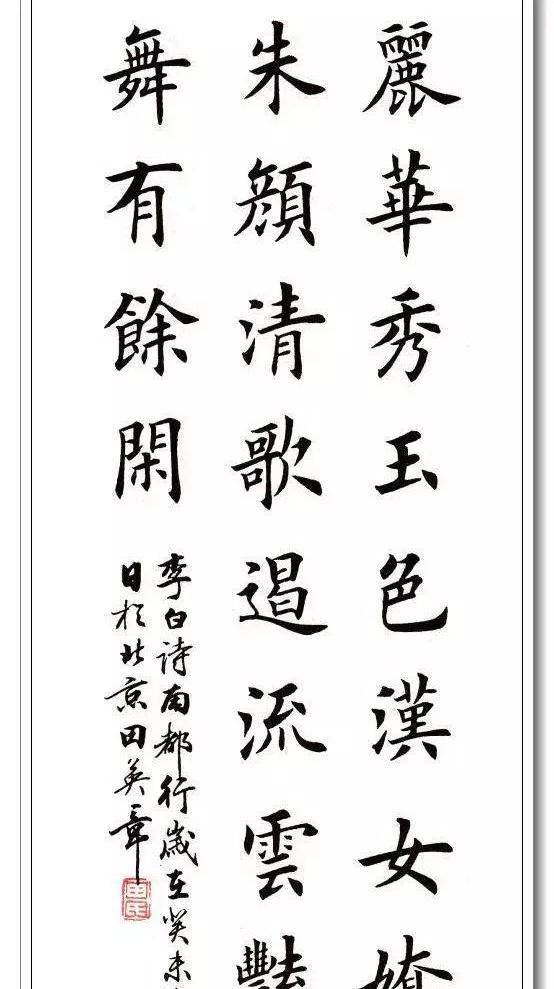 麗華秀玉色漢女嬌
朱顏清歌遏流雲
舞有餘閑
李白詩南都行歲在癸未
日於北京田英章
田氏